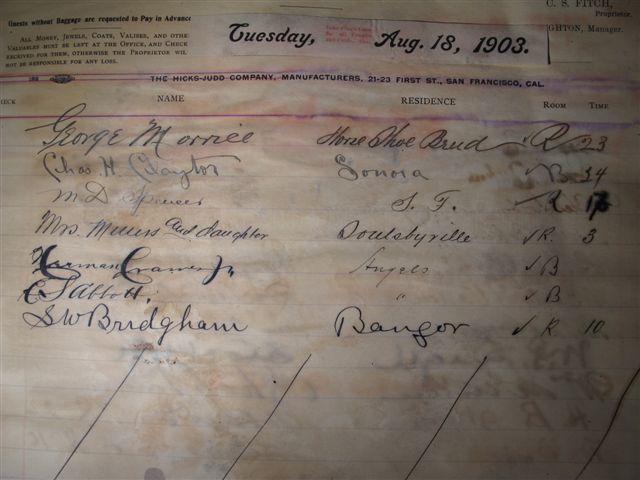 Guests without Baggage are requested to Pay in Advance
C. S. FITCH,
Proprietor.
ALL MONEY, JEWELS, COATS, VALISES, AND OTHE
VALUABLES MUST BE LEFT AT THE OFFICE, AND CHECK
RECEIVED FOR THEM, OTHERWISE THE PROPRIETOR WIL
NOT BE RESPONSIBLE FOR ANY LOSS.
Tuesday, Aug. 18, 1903.
GHTON, Manager.
THE HICKS-JUDD COMPANY, MANUFACTURERS, 21-23 FIRST ST., SAN FRANCISCO, CAL.
HECK NAME RESIDENCE ROOM TIME
George Morrill Horse Shoe Bend ✓ R 23
Chas. H. Clayton Sonora ✓ B 34
M D Spencer S. F. R
Mrs. and daughter Soulsbyville ✓ R. 3
Herman Cramer Jr. Angels ✓ B
C S Abbott. " ✓ B
S W Bridgham Bangor ✓ R. 10